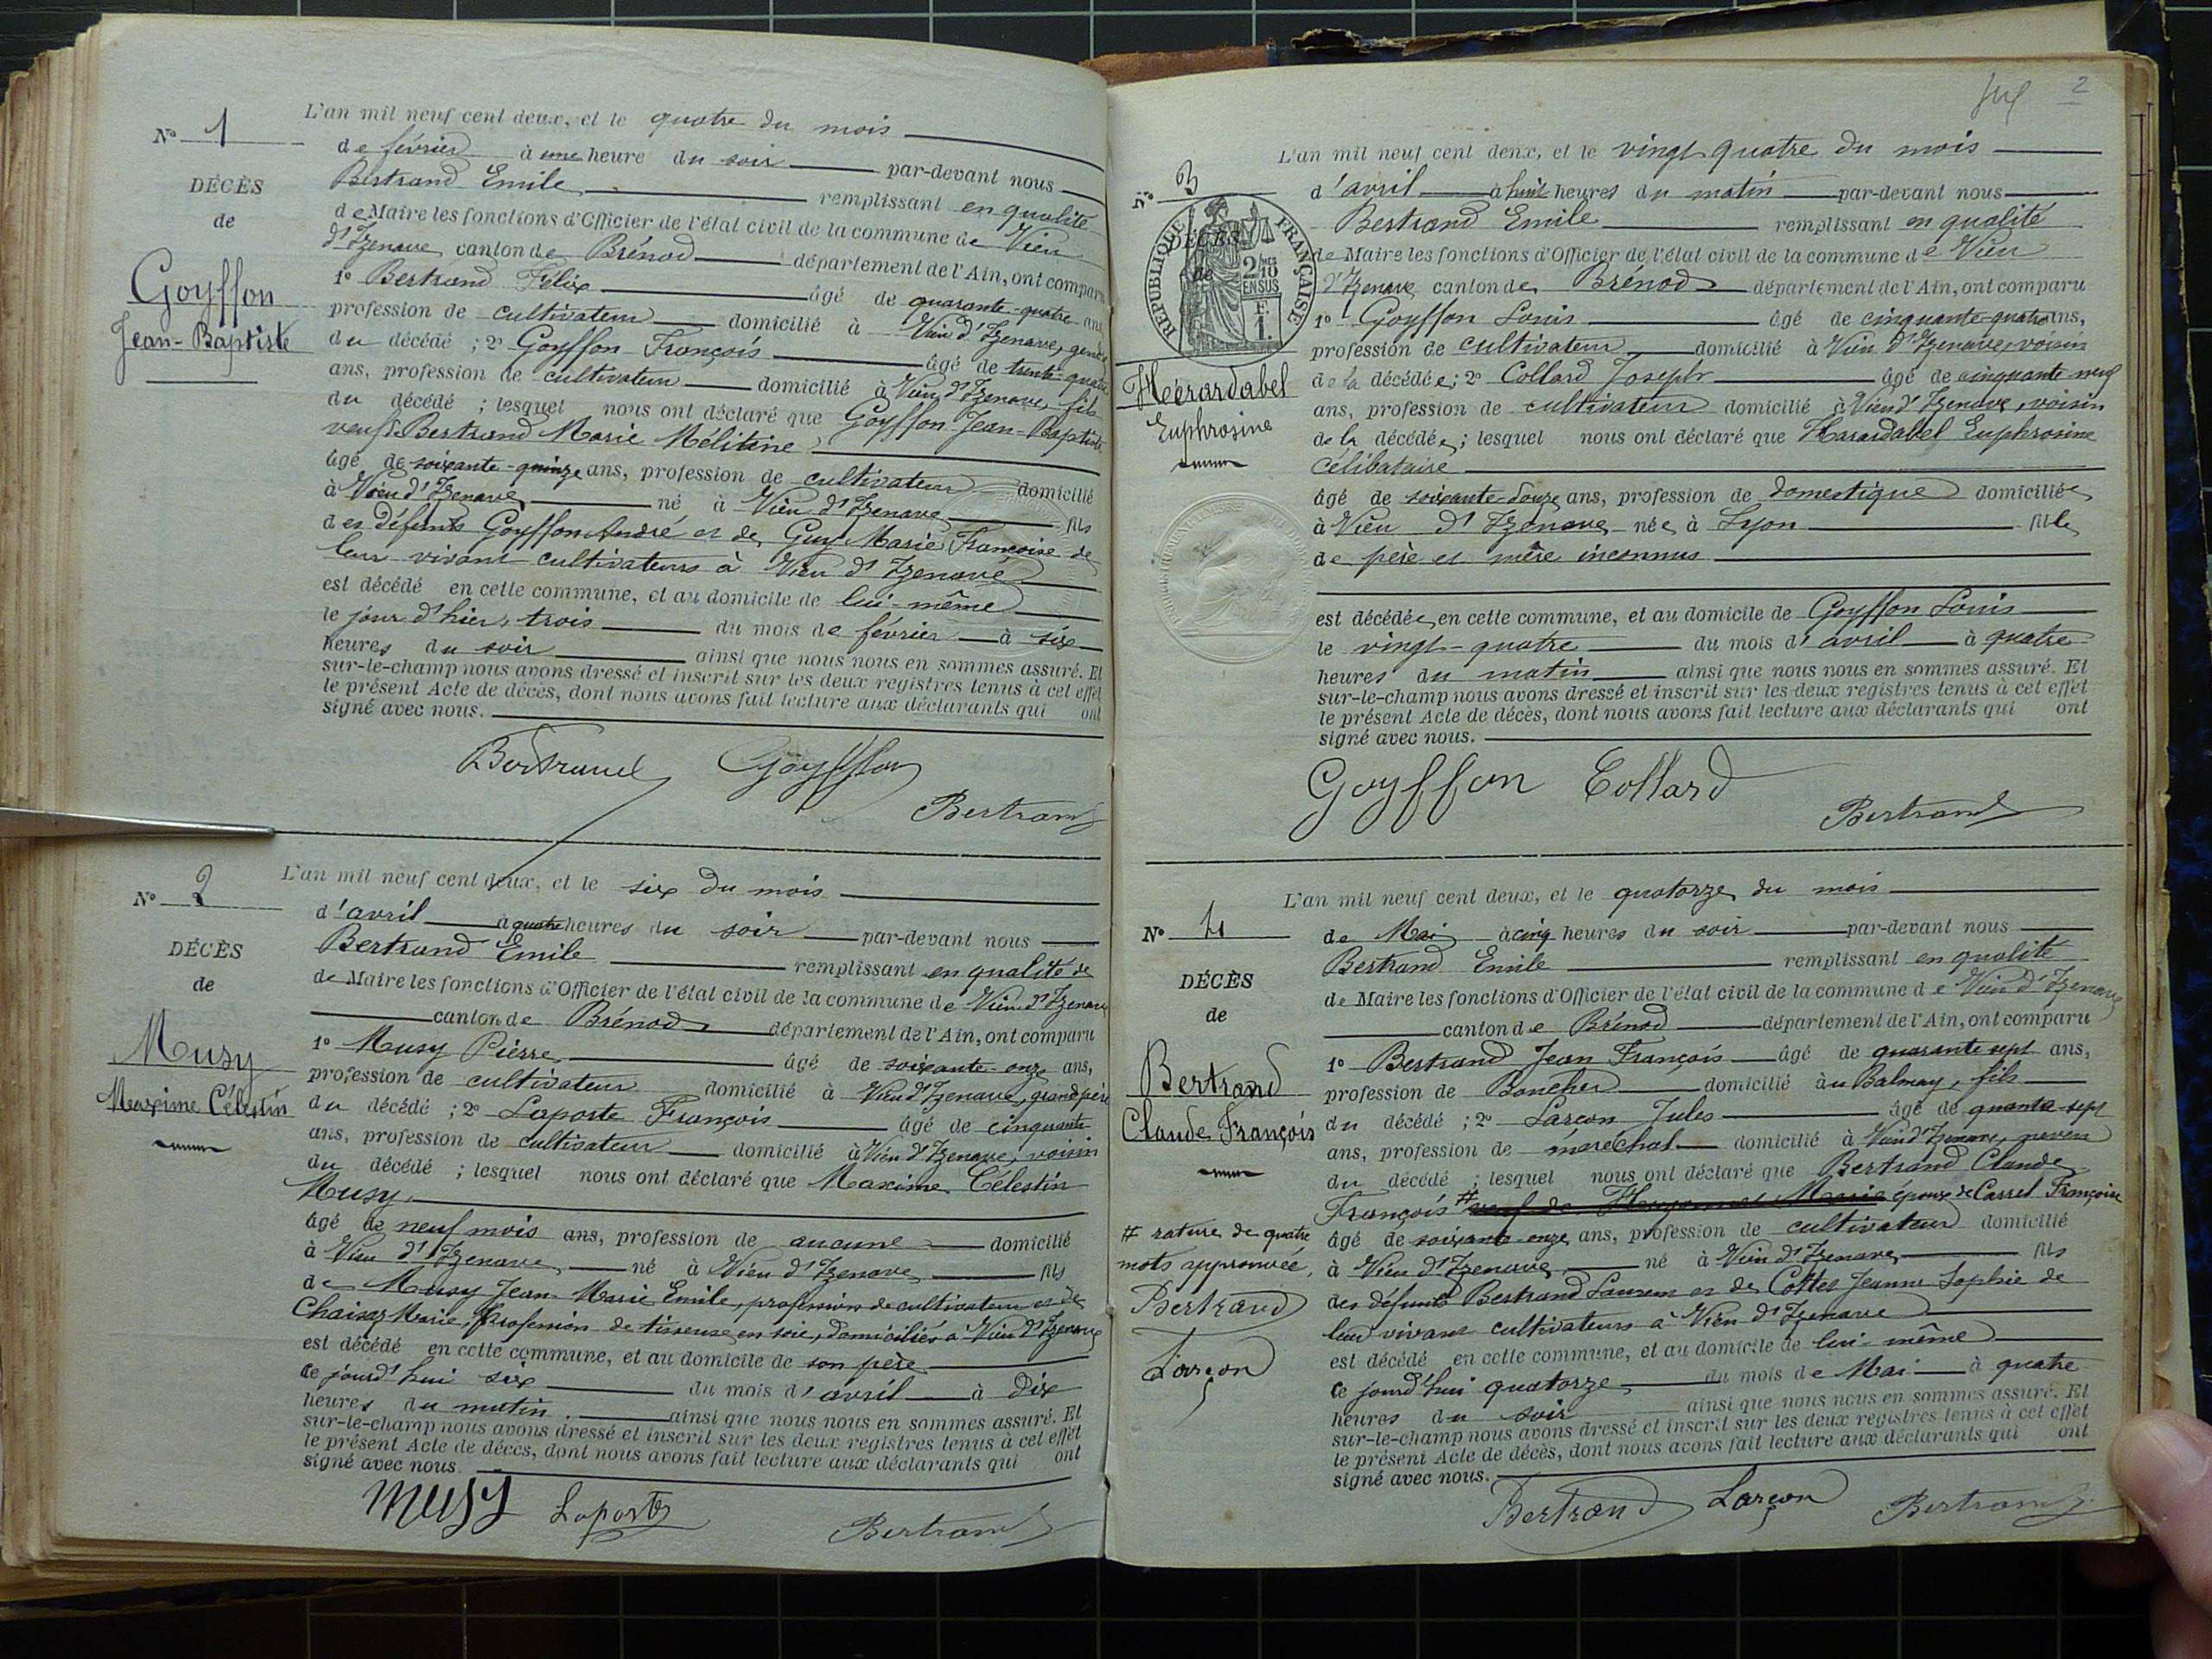 N° 1
DÉCÈS
de
Goyffon
Jean-Baptiste
L'an mil neuf cent deux, et le quatre du mois
de février à une heure du soir par-devant nous
Bertrand Emile remplissant en qualité
de Maire les fonctions d'Officier de l'état civil de la commune de Vieu
d'Izenave canton de Brénod département de l'Ain, ont comparu
1° Bertrand Félix âgé de quarante-quatre ans
profession de cultivateur domicilié à Vieu d'Izenave, gendre
du décédé ; 2° Goyffon François âgé de trente-quatre
ans, profession de cultivateur domicilié à Vieu d'Izenave, fils
du décédé ; lesquel nous ont déclaré que Goyffon Jean-Baptiste
veuf de Bertrand Marie Mélitine
âgé de soixante-quinze ans, profession de cultivateur domicilié
à Vieu d'Izenave né à Vieu d'Izenave fils
des défunts Goyffon André et de Guy Marie Françoise de
leur vivant cultivateurs à Vieu d'Izenave
est décédé en cette commune, et au domicile de lui-même
le jour d'hier, trois du mois de février à six
heures du soir ainsi que nous nous en sommes assuré. Et
sur-le-champ nous avons dressé et inscrit sur les deux registres tenus à cet effet
le présent Acte de décès, dont nous avons fait lecture aux déclarants qui ont
signé avec nous.
Bertrand Goyffon
Bertrand
N° 2
DÉCÈS
de
Musy
Maxime Célestin
L'an mil neuf cent deux, et le six du mois
d'avril à quatre heures du soir par-devant nous
Bertrand Emile remplissant en qualité de
de Maire les fonctions d'Officier de l'état civil de la commune de Vieu d'Izenave
canton de Brénod département de l'Ain, ont comparu
1° Musy Pierre âgé de soixante-onze ans,
profession de cultivateur domicilié à Vieu d'Izenave, grand père
du décédé ; 2° Laporte François âgé de cinquante
ans, profession de cultivateur domicilié à Vieu d'Izenave, voisin
du décédé ; lesquel nous ont déclaré que Maxime Célestin
Musy
âgé de neuf mois ans, profession de aucune domicilié
à Vieu d'Izenave né à Vieu d'Izenave fils
de Musy Jean-Marie Emile, profession de cultivateur et de
Chaisaz Marie, profession de tisseuse en soie, domiciliés à Vieu d'Izenave
est décédé en cette commune, et au domicile de son père
ce jourd'hui six du mois d'avril à dix
heures du matin. ainsi que nous nous en sommes assuré. Et
sur-le-champ nous avons dressé et inscrit sur les deux registres tenus à cet effet
le présent Acte de décès, dont nous avons fait lecture aux déclarants qui ont
signé avec nous
Musy Laporte
Bertrand
2
N° 3
DÉCÈS
de
RÉPUBLIQUE FRANÇAISE
2/10 EN SUS
F. 1.
Heérardabel
Euphrosine
L'an mil neuf cent deux, et le vingt quatre du mois
d'avril à huit heures du matin par-devant nous
Bertrand Emile remplissant en qualité
de Maire les fonctions d'Officier de l'état civil de la commune de Vieu
d'Izenave canton de Brénod département de l'Ain, ont comparu
1° Goyffon Louis âgé de cinquante-quatre ans,
profession de cultivateur domicilié à Vieu d'Izenave, voisin
de la décédée ; 2° Collard Joseph âgé de cinquante neuf
ans, profession de cultivateur domicilié à Vieu d'Izenave, voisin
de la décédée ; lesquel nous ont déclaré que Harardabel Euphrosine
célibataire
âgé de soixante-douze ans, profession de domestique domiciliée
à Vieu d'Izenave née à Lyon fille
de père et mère inconnus
est décédée en cette commune, et au domicile de Goyffon Louis
le vingt-quatre du mois d'avril à quatre
heures du matin ainsi que nous nous en sommes assuré. Et
sur-le-champ nous avons dressé et inscrit sur les deux registres tenus à cet effet
le présent Acte de décès, dont nous avons fait lecture aux déclarants qui ont
signé avec nous.
Goyffon Collard
Bertrand
N° 4
DÉCÈS
de
Bertrand
Claude François
# rature de quatre
mots approuvée,
Bertrand
Larçon
L'an mil neuf cent deux, et le quatorze du mois
de Mai à cinq heures du soir par-devant nous
Bertrand Emile remplissant en qualité
de Maire les fonctions d'Officier de l'état civil de la commune de Vieu d'Izenave
canton de Brénod département de l'Ain, ont comparu
1° Bertrand Jean François âgé de quarante sept ans,
profession de Boucher domicilié au Balmay, fils
du décédé ; 2° Larçon Jules âgé de quarante-sept
ans, profession de maréchal domicilié à Vieu d'Izenave, neveu
du décédé ; lesquel nous ont déclaré que Bertrand Claude
François # veuf de Marie époux de Carrel Françoise
âgé de soixante-onze ans, profession de cultivateur domicilié
à Vieu d'Izenave né à Vieu d'Izenave fils
des défunts Bertrand Laurent et de Cottet Jeanne Sophie de
leur vivant cultivateurs à Vieu d'Izenave
est décédé en cette commune, et au domicile de lui-même
ce jourd'hui quatorze du mois de Mai à quatre
heures du soir ainsi que nous nous en sommes assuré. Et
sur-le-champ nous avons dressé et inscrit sur les deux registres tenus à cet effet
le présent Acte de décès, dont nous avons fait lecture aux déclarants qui ont
signé avec nous.
Bertrand Larçon Bertrand